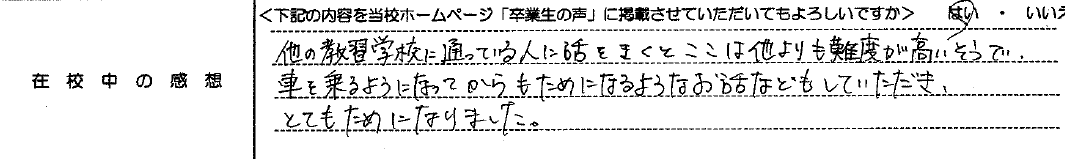 <下記の内容を当校ホームページ「卒業生の声」に掲載させていただいてもよろしいですか> はい ・ いいえ
在校中の感想
他の教習学校に通っている人に話をきくとここは他よりも難度が高いそうで、
車を乗るようになってからもためになるようなお話などもしていただき、
とてもためになりました。